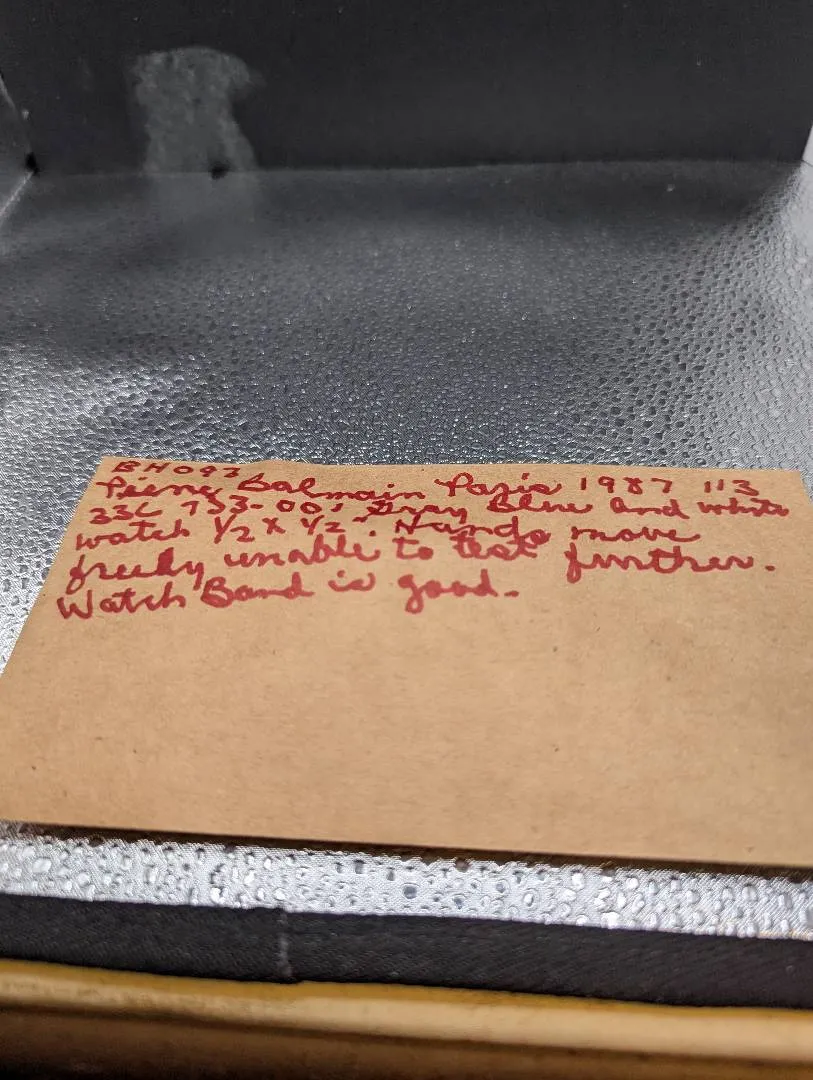 BH093
Pierre Balmain Paris 1987 113
336 753-00, Gray Blue and white
watch 1/2 X 1/2". Hands move
freely unable to test further.
Watch Band is good.